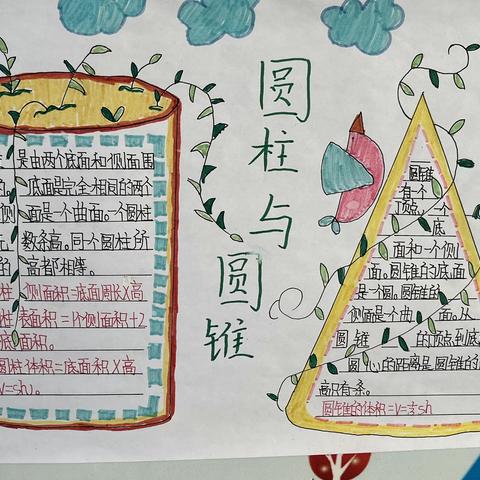 圆柱与圆锥
是由两个底面和侧面围
底面是完全相同的两个
侧面是一个曲面。一个圆柱
数条高。同个圆柱所
的高都相等。
柱侧面积=底面周长X高
柱表面积=1个侧面积+2
底面积。
圆柱体积=底面积X高
V=sh。
圆锥
有个
顶点,一个
底
面和一个侧
面。圆锥的底面
是一个圆。圆锥的
侧面是个曲面。从
圆锥的顶点到底
圆心的距离是圆锥的
高只有条。
圆锥的体积=V=⅓sh